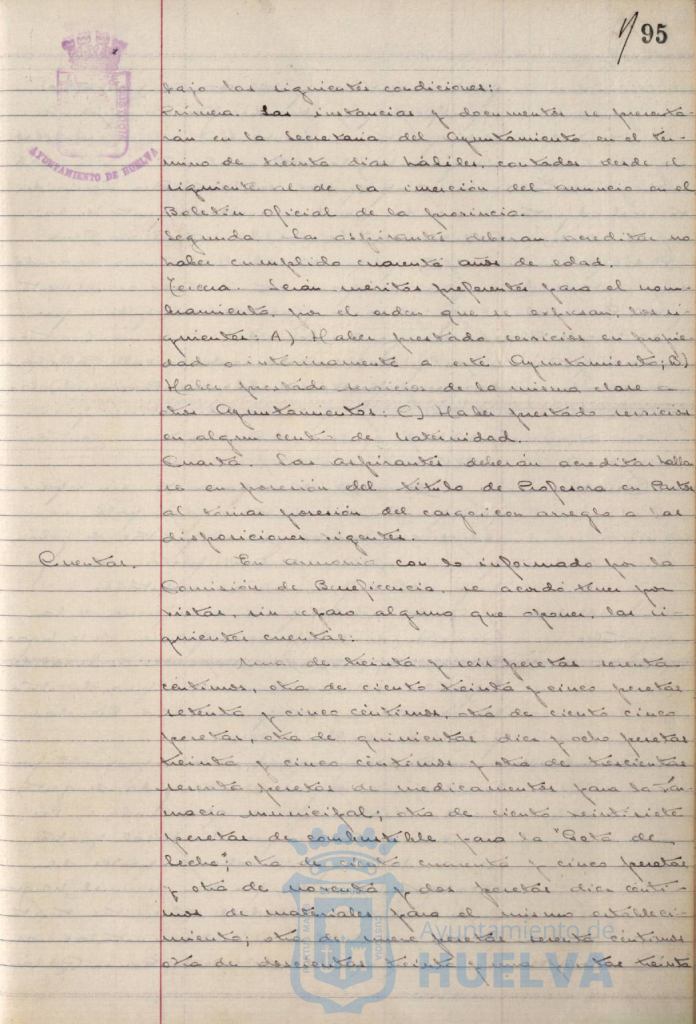 95
AYUNTAMIENTO DE HUELVA
bajo las siguientes condiciones:
Primera. Las instancias y documentos se presenta-
rán en la Secretaria del Ayuntamiento en el tér-
mino de treinta dias hábiles, contados desde el
siguiente al de la inserción del anuncio en el
Boletin oficial de la provincia.
Segunda. Las aspirantes deberan acreditar no
haber cumplido cuarenta años de edad.
Tercera. Serán méritos preferentes para el nom-
bramiento, por el orden que se expresan, los si-
guientes: A) Haber prestado servicios en propie-
dad o interinamente a este Ayuntamiento; B)
Haber prestado servicios de la misma clase a
otros Ayuntamientos: C) Haber prestado servicios
en algun centro de Maternidad.
Cuarta. Las aspirantes deberán acreditar halla
se en posesión del titulo de Profesora en Partos
al tomar posesión del cargo, con arreglo a las
disposiciones vigentes.
Cuentas. En armonia con lo informado por la
Comisión de Beneficencia, se acordó tener por
vistas, sin reparo alguno que oponer, las si-
guientes cuentas:
Una de treinta y seis pesetas sesenta
céntimos, otra de ciento treinta y cinco pesetas
setenta y cinco céntimos, otra de ciento cinco
pesetas, otra de quinientas diez y ocho pesetas
treinta y cinco céntimos y otra de trescientas
sesenta pesetas de medicamentos para la Far-
macia municipal; otra de ciento veintisiete
pesetas de combustible para la "Gota de
Leche"; otra de ciento cuarenta y cinco pesetas
y otra de noventa y dos pesetas diez cénti-
mos de materiales para el mismo estableci-
miento; otra de nueve pesetas sesenta céntimos
otra de doscientas treinta y una pesetas treinta
Ayuntamiento de
HUELVA